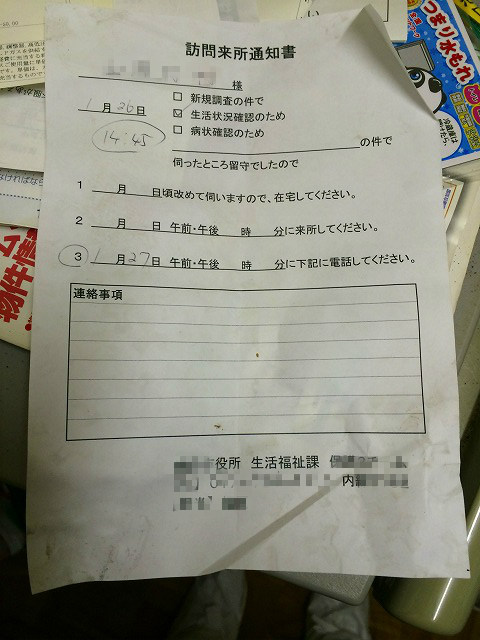 訪問来所通知書
様
1月26日
14:45
□ 新規調査の件で
☑ 生活状況確認のため
□ 病状確認のため
の件で
伺ったところ留守でしたので
1 月 日頃改めて伺いますので、在宅してください。
2 月 日 午前・午後 時 分に来所してください。
③ 1月27日 午前・午後 時 分に下記に電話してください。
連絡事項
役所 生活福祉課
内
つまり水もれ
物件